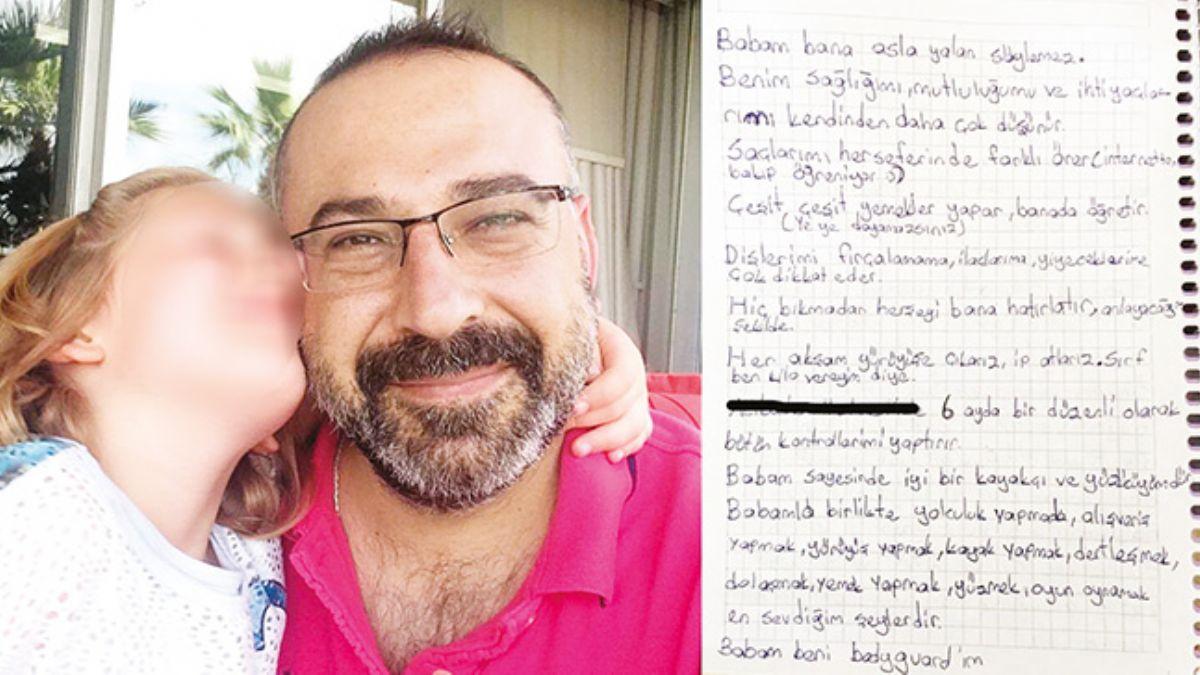 Babam bana asla yalan söylemez.
Benim sağlığımı, mutluluğumu ve ihtiyaçla-
rımı kendinden daha çok düşünür.
Saçlarımı herseferinde farklı örer(internetten
bakıp öğreniyor :))
Çeşit, çeşit yemekler yapar, banada öğretir.
(Ye ye dayamazsınız)
Dişlerimi fırçalamama, ilaçlarıma, yiyeceklerime
çok dikkat eder.
Hiç bıkmadan herşeyi bana hatırlatır, anlayacağım
şekilde.
Her akşam yürüyüşe çıkarız, ip atlarız. Sırf
ben kilo vereyim diye.
6 ayda bir düzenli olarak
bütün kontrollerimi yaptırır.
Babam sayesinde iyi bir kayakçı ve yüzücüyümdür
Babamla birlikte yolculuk yapmada, alışveriş
yapmak, yürüyüş yapmak, kayak yapmak, dertleşmek,
dolaşmak, yemek yapmak, yüzmek, oyun oynamak
en sevdiğim şeylerdir.
Babam beni bodyguard'ım